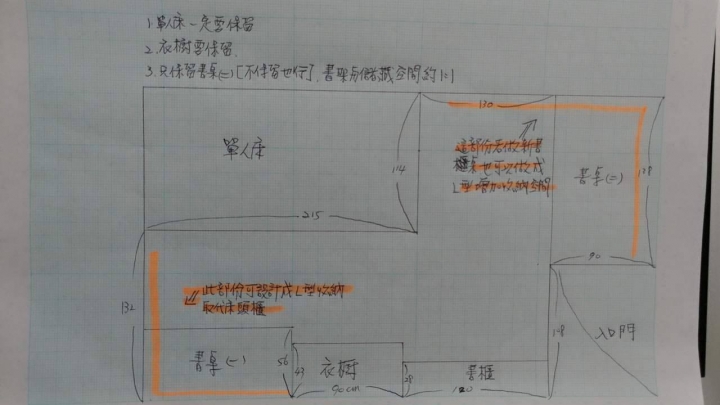 1.單人床一定要保留
2.衣櫥要保留.
3.只保留書桌(二)[不保留也行].書架與儲藏空間約1:1
130
單人床
114
這部份若做新書
櫃桌也可以做成
L型增加收納空間
書桌(二)
128
215
90
132
此部份可設計成L型收納
取代床頭櫃
入口門
書桌(一)
56
43
衣櫥
90cm
書櫃
120